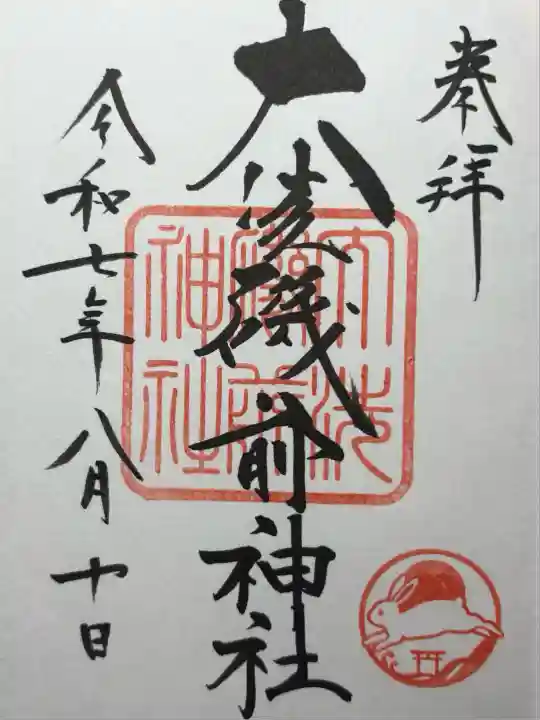 奉拝
大洗磯前神社
令和七年八月十日
大洗
磯前
神社